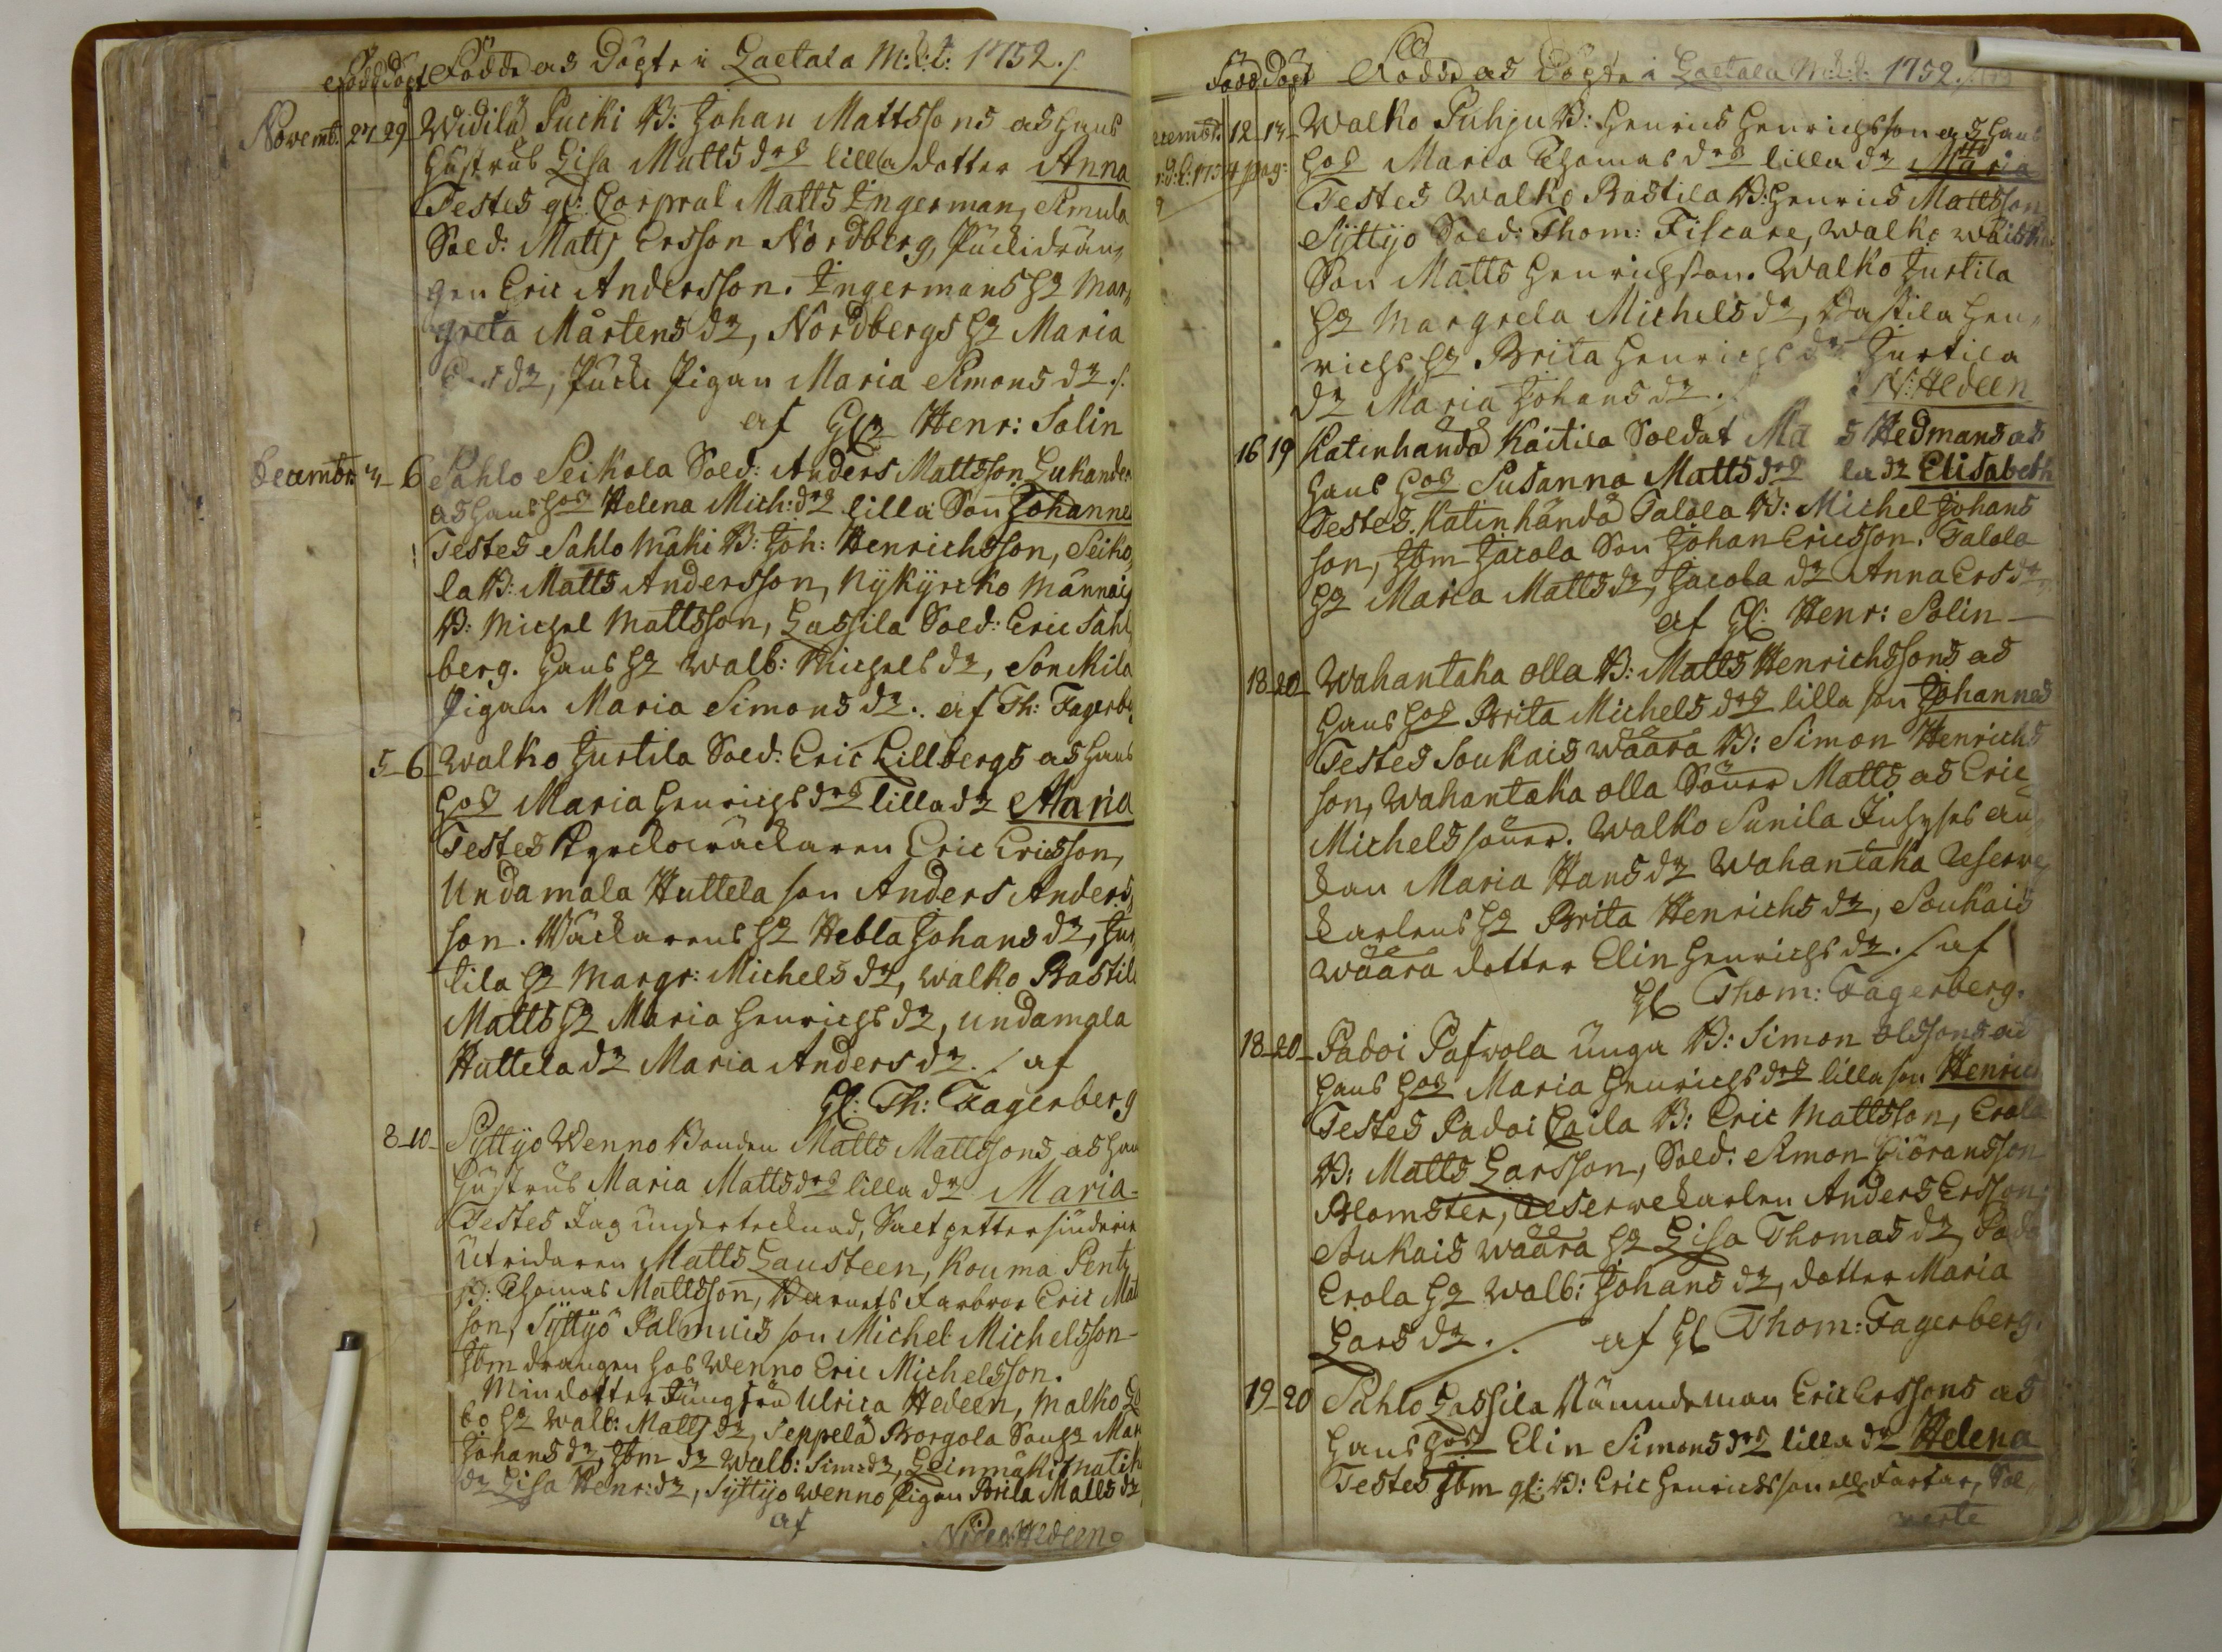 Född Döpt Födde as Döpte i Laetala M:k:t: 1752./.
Novemb: 27 29 Widilä Pucki B: Johan Mattssons as hans
hustrus Lisa Matts drs lilla dotter Anna
Testes gl: Corporal Matts Ingerman, Simula
Sold: Matts Ersson Nordberg, Pucki drän,
gen Eric Andersson. Ingermans h2 Mar,
greta Mårtens d2, Nordbergs h2 Maria
d2, Pucki Pigan Maria Simons d2./.
af Gl2 Henr: Salin
Decembr: 4 6 Sahlo Seikola Sold: Anders Mattsson Lukander
as hans hos Helena Mich: drs lilla Son Johanne
Testes Sahlo Mäki B: Joh: Henrichsson, Seiko,
la B: Matts Andersson, Nykyrcko Männäis
B: Michel Mattsson, Lassila Sold: Eric Sahl
berg. hans h2 Walb: Michels d2, Sonckila
Pigan Maria Simons d2. af Th: Fagerb
5 6 Walko Jurtila Sold: Eric Lillbergs as hans
hos Maria Henrichs drs lilla d2 Maria
Testes Kyrckowäckaren Eric Ericsson,
Undamala Huttela son Anders Anders,
son. Wäckarens h2 Hebla Johans d2, Jur
tila h2 Margr: Michels d2, Walko Bastila
Matts h2 Maria Henrichs d2, Undamala
Huttela d2 Maria Anders d2./. af
Gl: Th: Fagerberg
8 10 Syttyo Wenno Bonden Matts Mattssons as han
hustrus Maria Matts drs lilla d2 Maria
Testes Jag undertecknad, Saltpettersiuderie
Utridaren Matts Lausteen, Kouma Pent
B: Thomas Mattsson, Barnets Farbror Eric Mat
son, Syttyö Palmuis son Michel Michelsson
Ibm drängen hos Wenno Eric Michelsson.
Min dotter Jungfru Ulrica Hedeen, Malko
bo h2 Walb: Matts d2, Seppelä Borgola Sons h2 Mar
Johans d2, Ibm d2 Walb: Sim: d2, Leinmäki Matis
d2 Lisa Henr: d2, Syttyo Wenno Pigan Brita Matts d2
af Hedeen
Född Döpt Födde as Döpte i Laetala M:k:t: 1752./.
Decembr: 12 14 Walko Puhju B: Henrics Henrichsson as hans
hos Maria Thomas drs lilla d2 Maria
Testes Walko Bastila B: Henrics Mattsson,
Syttyo Sold: Thom: Fiscare, Walko
Son Matts Henrichsson. Walko Jurtila
h2 Margreta Michels d2, Bastila Hen,
richs h2 Brita Henrichs d2 Jurtila
d2 Maria Johans d2. N: Hedeen
16 19 Katinhändä Kaitila Soldat Ma s Hedmans as
hans hos Susanna Matts drs la d2 Elisabeth
Testes Katinhändä Talola B: Michel Johans
son, Ibm Jacola Son Johan Ericsson. Talola
h2 Maria Matts d2, Jacola d2 Anna Ers d2
af Gl: Henr: Salin
18 20 Wahantaka olla B: Matts Henrichssons as
hans hos Brita Michels drs lilla son Johannes
Testes Soukais wäära B: Simon Henrichs
son, Wahantaka olla Söner Matts as Eric
Michels söner. Walko Sunila Inhyses än,
kan Maria Hans d2 Wahantaka Reserwe
karlens h2 Brita Henrichs d2, Soukais
wäära dotter Elin Henrichs d2./. af
Gl Thom: Fagerberg.
18 20 Padoi Pafwola unga B: Simon Olssons as
hans hos Maria Henrichs drs lilla son Henric
Testes Padoi Caila B: Eric Mattsson, Erola
B: Matts Larsson, Sold: Simon Giöransson
Blomster, Reserwekarlen Anders Ersson,
Soukais wäära h2 Lisa Thomas d2, Pado
Erola h2 Walb: Johans d2, dotter Maria
Lars d2. af Gl Thom: Fagerberg.
19 20 Sahlo Lassila Nämndeman Eric Erssons as
hans hos Elin Simons drs lilla d2 Helena
Testes Ibm gl: B: Eric Henrichsson ell. Farfar, Sol
verte